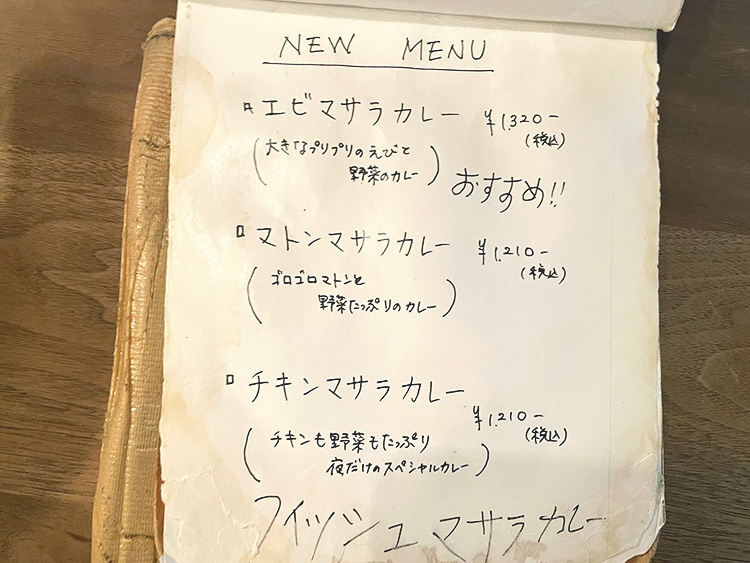 NEW MENU
□ エビマサラカレー ¥1.320-
(税込)
(大きなプリプリのえびと
野菜のカレー)
おすすめ!!
□ マトンマサラカレー ¥1.210-
(税込)
(ゴロゴロマトンと
野菜たっぷりのカレー)
□ チキンマサラカレー
¥1.210-
(税込)
(チキンも野菜もたっぷり
夜だけのスペシャルカレー)
フィッシュマサラカレー